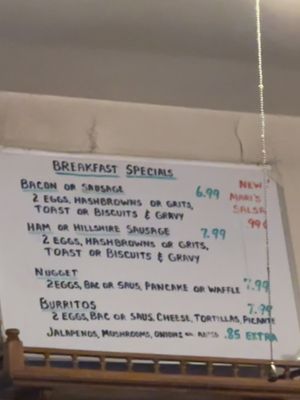 BREAKFAST SPECIALS
BACON OR SAUSAGE 6.99
2 EGGS, HASHBROWNS OR GRITS,
TOAST OR BISCUITS & GRAVY
NEW
MARI'S
SALSA
99¢
HAM OR HILLSHIRE SAUSAGE 7.99
2 EGGS, HASHBROWNS OR GRITS,
TOAST OR BISCUITS & GRAVY
NUGGET
2 EGGS, BAC OR SAUS, PANCAKE OR WAFFLE 7.99
BURRITOS 7.99
2 EGGS, BAC OR SAUS, CHEESE, TORTILLAS, PICANTE
JALAPENOS, MUSHROOMS, ONIONS OR .85 EXTRA